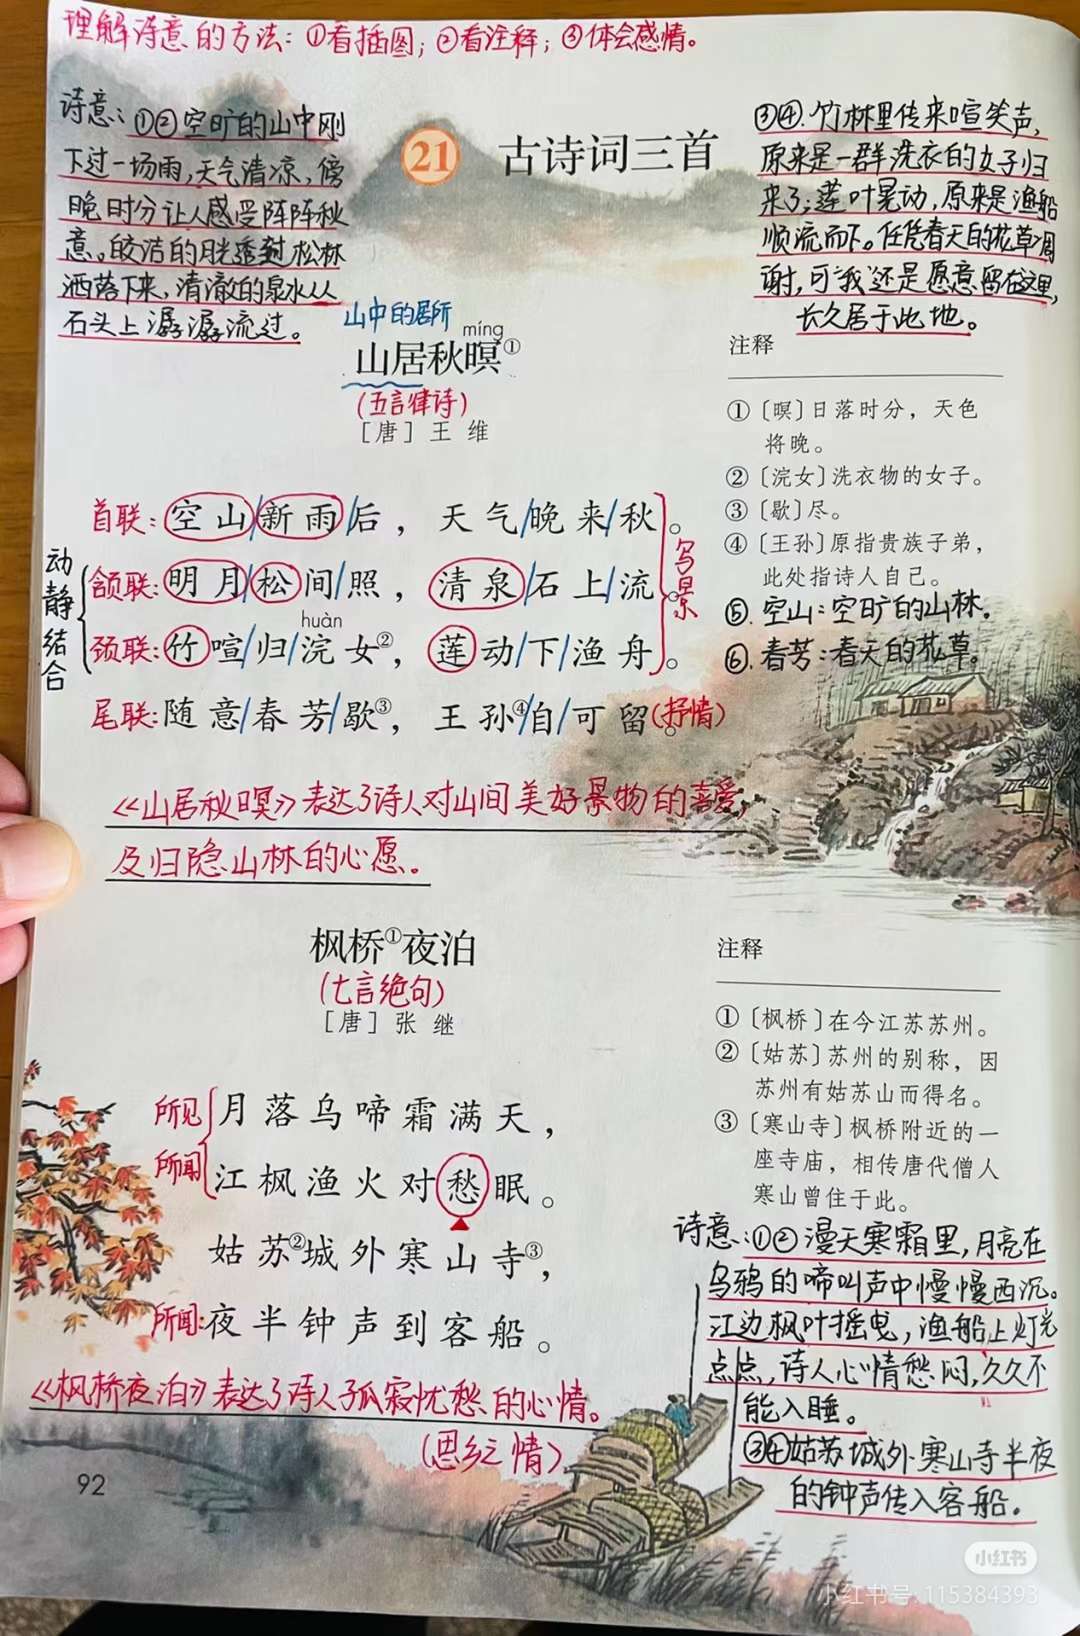 理解诗意的方法：①看插图；②看注释；③体会感情。
诗意：①②空旷的山中刚
下过一场雨，天气清凉，傍
晚时分让人感受阵阵秋
意。皎洁的月光透过松林
洒落下来，清澈的泉水从
石头上潺潺流过。
21 古诗词三首
③④.竹林里传来喧笑声，
原来是一群洗衣的女子归
来了；莲叶晃动，原来是渔船
顺流而下。任凭春天的花草凋
谢，可我还是愿意留在这里，
长久居于此地。
山中的居所
míng
山居秋暝①
(五言律诗)
［唐］王维
首联：空山/新雨/后，天气/晚来/秋。
颔联：明月/松间/照，清泉/石上/流。
huàn
颈联：竹喧/归/浣女②，莲动/下/渔舟。
尾联：随意/春芳/歇③，王孙④/自/可留。(抒情)
动静结合
写景
注释
①〔暝〕日落时分，天色
将晚。
②〔浣女〕洗衣物的女子。
③〔歇〕尽。
④〔王孙〕原指贵族子弟，
此处指诗人自己。
⑤.空山：空旷的山林。
⑥.春芳：春天的花草。
《山居秋暝》表达了诗人对山间美好景物的喜爱，
及归隐山林的心愿。
枫桥①夜泊
(七言绝句)
［唐］张继
所见
所闻
月落乌啼霜满天，
江枫渔火对愁眠。
姑苏②城外寒山寺③，
所闻：夜半钟声到客船。
注释
①〔枫桥〕在今江苏苏州。
②〔姑苏〕苏州的别称，因
苏州有姑苏山而得名。
③〔寒山寺〕枫桥附近的一
座寺庙，相传唐代僧人
寒山曾住于此。
诗意：①②漫天寒霜里，月亮在
乌鸦的啼叫声中慢慢西沉。
江边枫叶摇曳，渔船上灯光
点点，诗人心情愁闷，久久不
能入睡。
③④姑苏城外寒山寺半夜
的钟声传入客船。
《枫桥夜泊》表达了诗人孤寂忧愁的心情。
(思乡之情)
92
小红书
小红书号：115384393